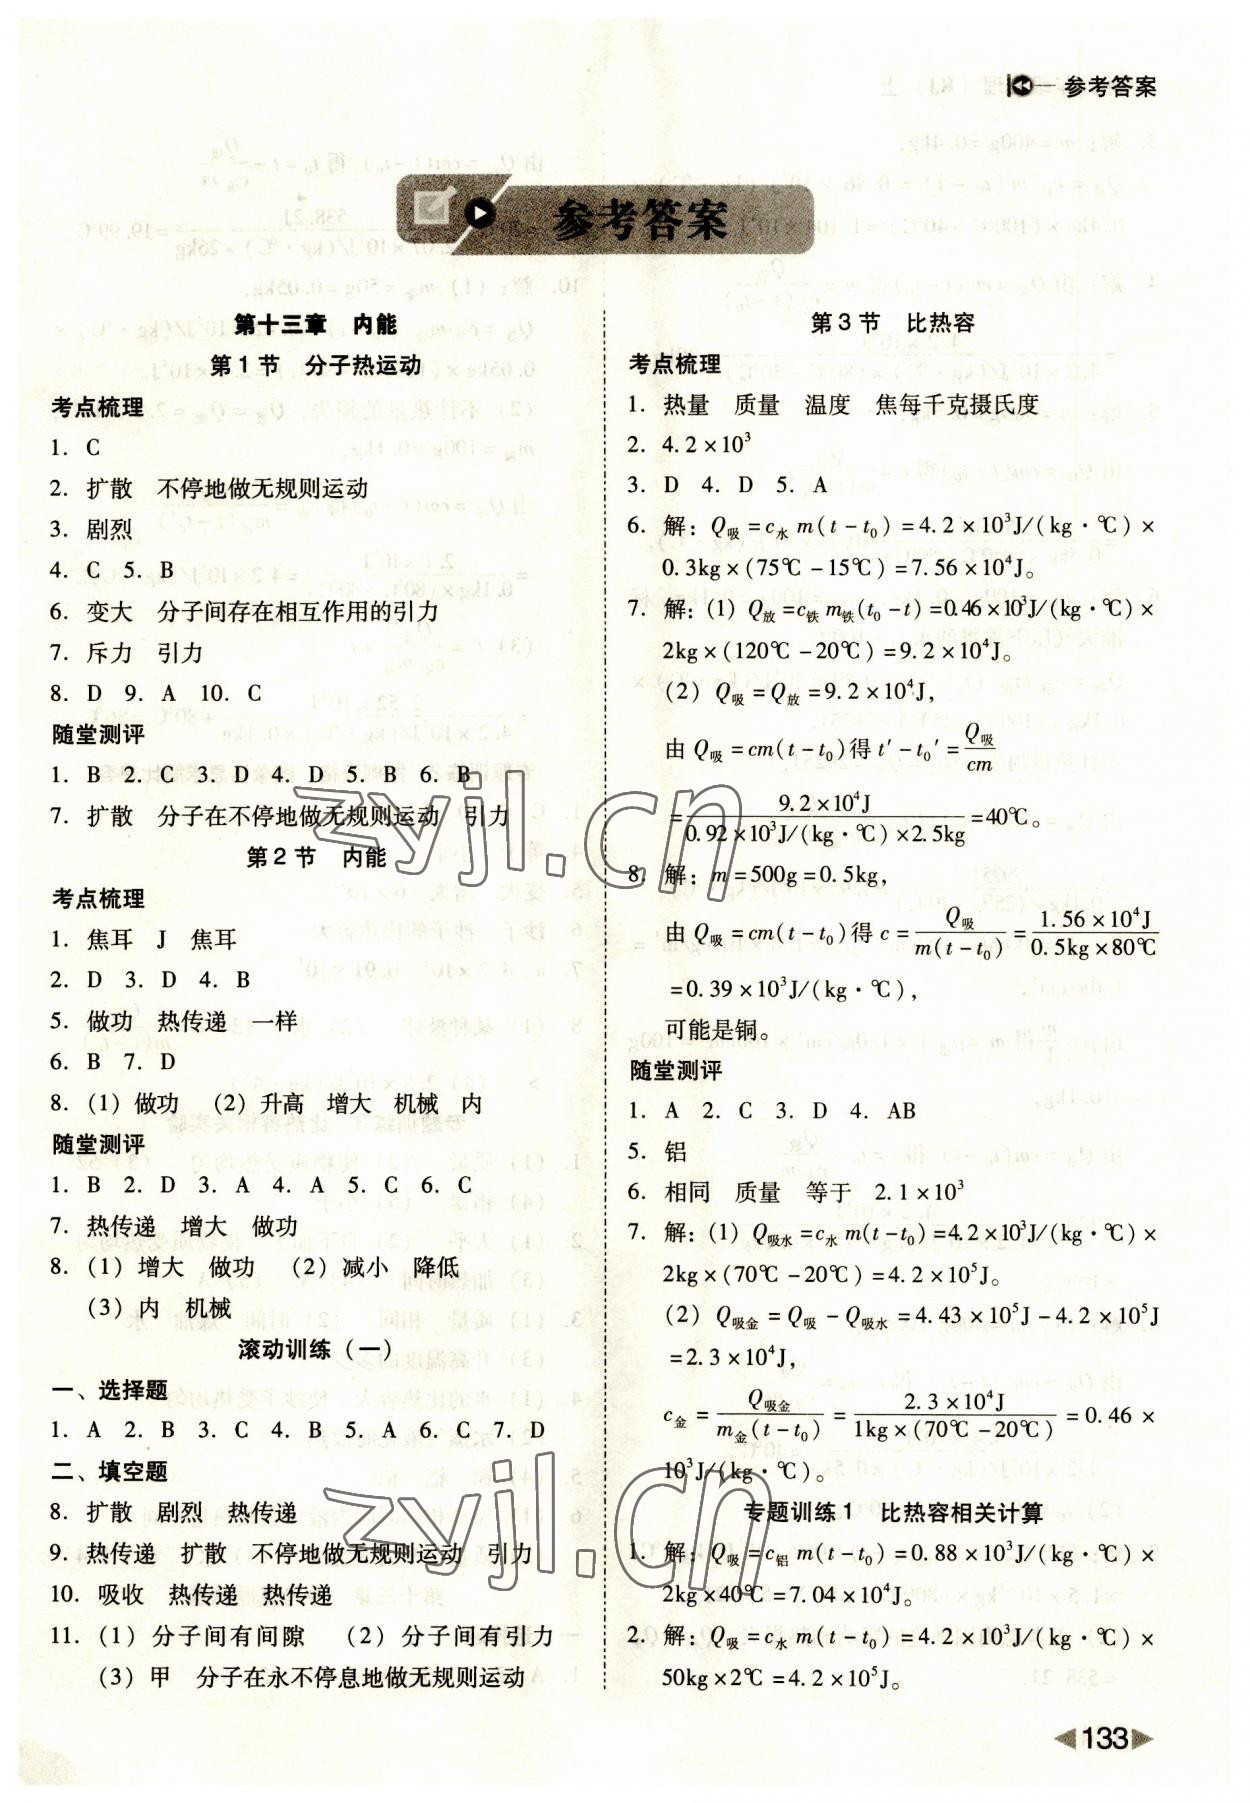 参考答案
参考答案
第十三章 内能
第1节 分子热运动
考点梳理
1. C
2. 扩散 不停地做无规则运动
3. 剧烈
4. C 5. B
6. 变大 分子间存在相互作用的引力
7. 斥力 引力
8. D 9. A 10. C
随堂测评
1. B 2. C 3. D 4. D 5. B 6. B
7. 扩散 分子在不停地做无规则运动 引力
第2节 内能
考点梳理
1. 焦耳 J 焦耳
2. D 3. D 4. B
5. 做功 热传递 一样
6. B 7. D
8. (1) 做功 (2) 升高 增大 机械 内
随堂测评
1. B 2. D 3. A 4. A 5. C 6. C
7. 热传递 增大 做功
8. (1) 增大 做功 (2) 减小 降低
(3) 内 机械
滚动训练(一)
一、选择题
1. A 2. B 3. C 4. B 5. A 6. C 7. D
二、填空题
8. 扩散 剧烈 热传递
9. 热传递 扩散 不停地做无规则运动 引力
10. 吸收 热传递 热传递
11. (1) 分子间有间隙 (2) 分子间有引力
(3) 甲 分子在永不停息地做无规则运动
第3节 比热容
考点梳理
1. 热量 质量 温度 焦每千克摄氏度
2. 4.2×10³
3. D 4. D 5. A
6. 解：Q吸=c水 m(t-t₀)=4.2×10³J/(kg·℃)×
0.3kg×(75℃-15℃)=7.56×10⁴J。
7. 解：(1) Q放=c铁 m铁(t₀-t)=0.46×10³J/(kg·℃)×
2kg×(120℃-20℃)=9.2×10⁴J。
(2) Q吸=Q放=9.2×10⁴J，
由 Q吸=cm(t-t₀)得 t′-t₀′=Q吸/cm
=9.2×10⁴J/0.92×10³J/(kg·℃)×2.5kg=40℃。
8. 解：m=500g=0.5kg，
由 Q吸=cm(t-t₀)得 c=Q吸/m(t-t₀)=1.56×10⁴J/0.5kg×80℃
=0.39×10³J/(kg·℃)，
可能是铜。
随堂测评
1. A 2. C 3. D 4. AB
5. 铝
6. 相同 质量 等于 2.1×10³
7. 解：(1) Q吸水=c水 m(t-t₀)=4.2×10³J/(kg·℃)×
2kg×(70℃-20℃)=4.2×10⁵J。
(2) Q吸金=Q吸-Q吸水=4.43×10⁵J-4.2×10⁵J
=2.3×10⁴J，
c金=Q吸金/m金(t-t₀)=2.3×10⁴J/1kg×(70℃-20℃)=0.46×
10³J/(kg·℃)。
专题训练1 比热容相关计算
1. 解：Q吸=c铝 m(t-t₀)=0.88×10³J/(kg·℃)×
2kg×40℃=7.04×10⁴J。
2. 解：Q吸=c水 m(t-t₀)=4.2×10³J/(kg·℃)×
50kg×2℃=4.2×10⁵J。
133
zyjl.cn
zyjl.cn